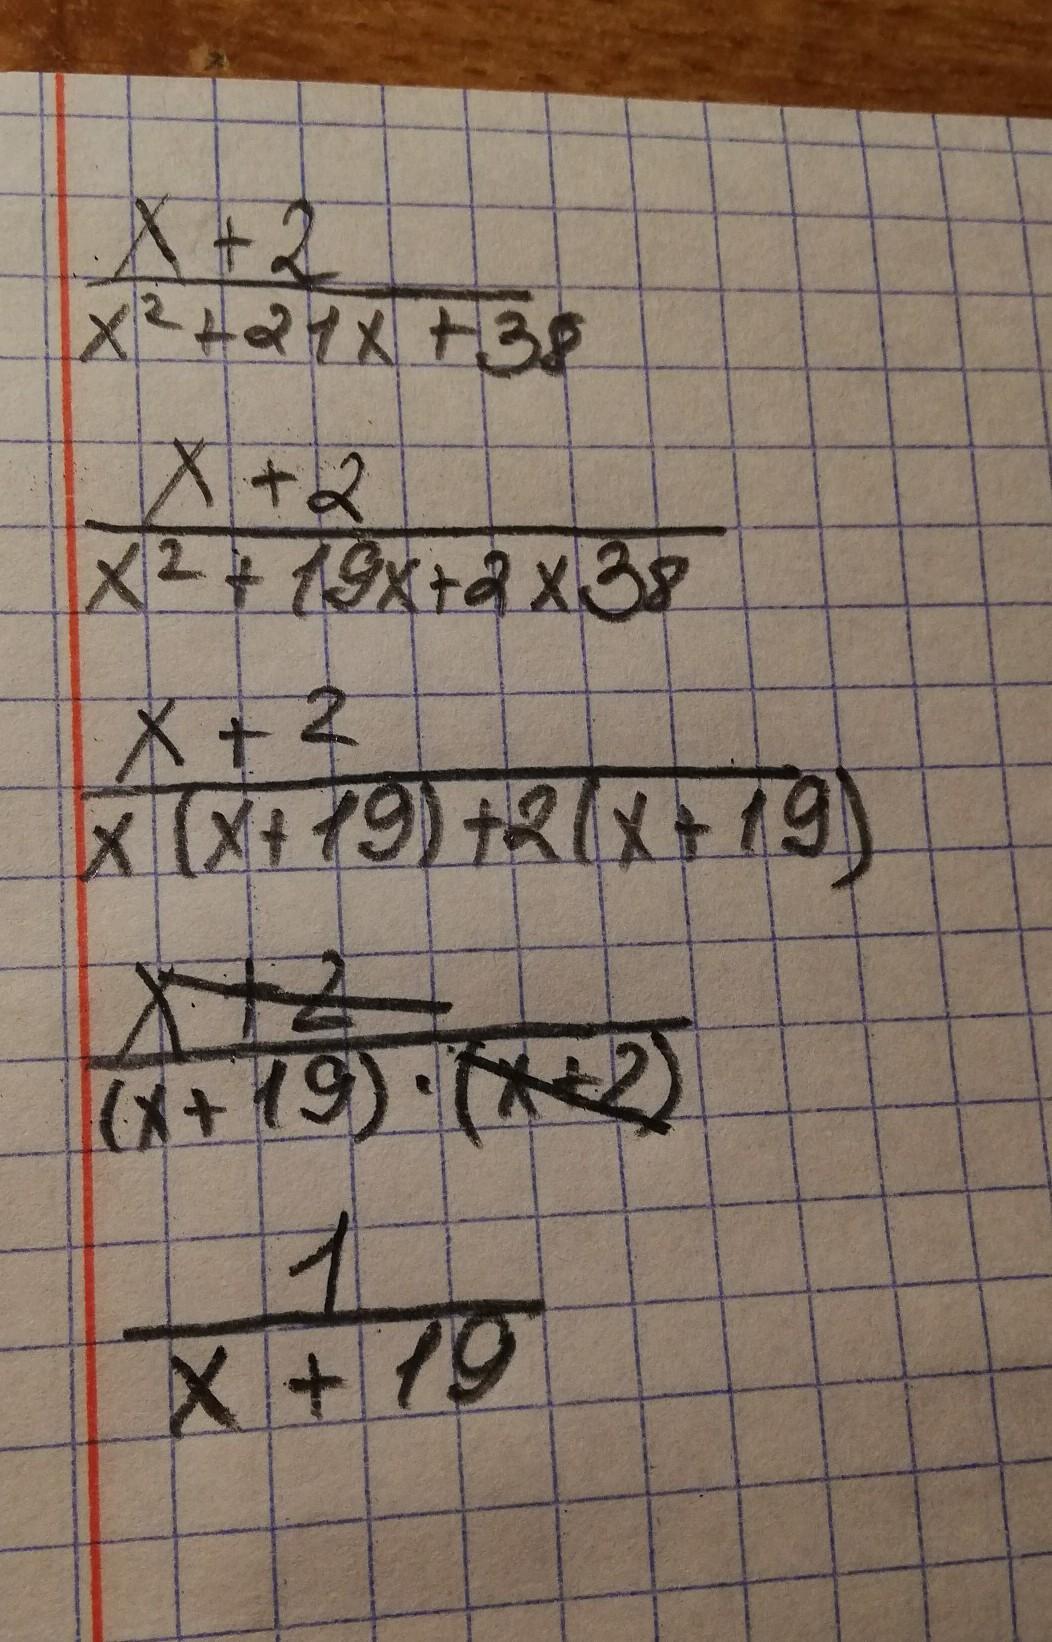 x + 2
x² + 21x + 38
x + 2
x² + 19x + 2x38
x + 2
x (x + 19) + 2 (x + 19)
x + 2
(x + 19) · (x + 2)
1
x + 19